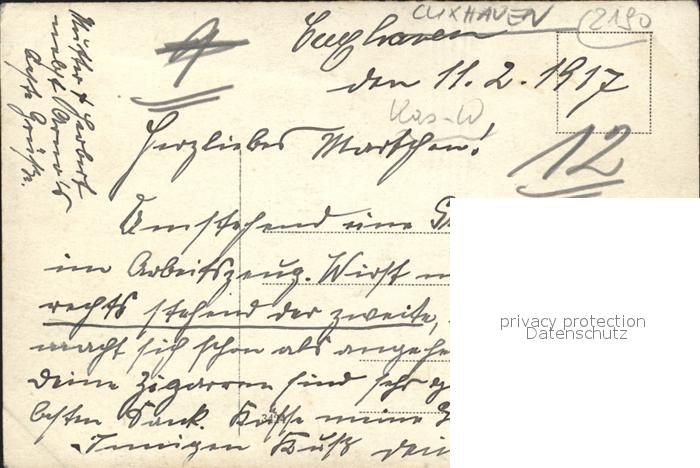 CUXHAVEN
2190
Cuxhaven
den 11.2.1917
Kas-W
12
Herzliebes Martchen!
Umstehend eine
im Arbeitszeug. Wirst
rechts stehend der zweite,
macht sich schon als angehe
Deine Zigarren sind sehr g
besten Dank. Küsse meine
Innigen Kuß Dein
Mutter & Herbert
nebst Oma
beste Grüße.
privacy protection
Datenschutz